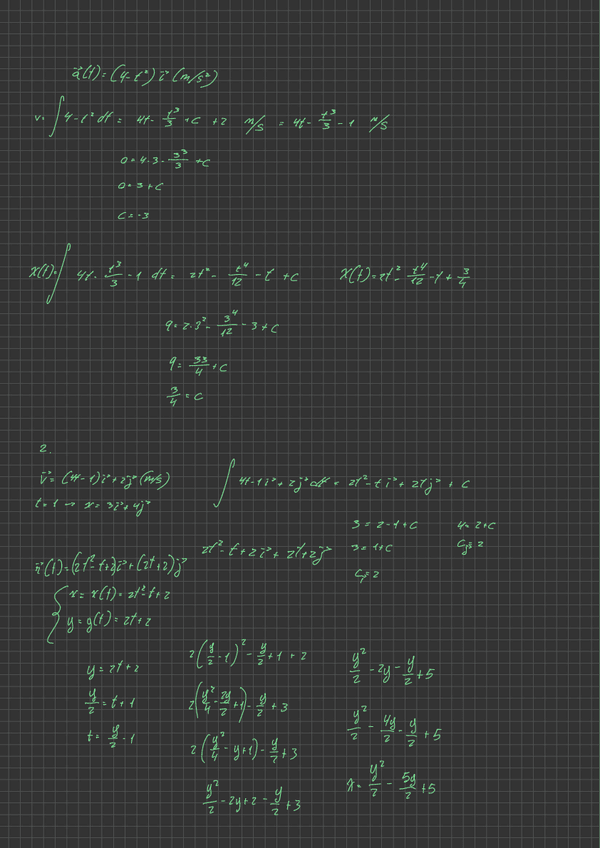 a⃗(t) = (4 - t²) i⃗ (m/s²)
v = ∫ 4 - t² dt = 4t - t³/3 + C + 2 m/s = 4t - t³/3 - 1 m/s
0 = 4·3 - 3³/3 + C
0 = 3 + C
C = -3
x(t) = ∫ 4t - t³/3 - 1 dt = 2t² - t⁴/12 - t + C x(t) = 2t² - t⁴/12 - t + 3/4
9 = 2·3² - 3⁴/12 - 3 + C
9 = 33/4 + C
3/4 = C
2.
v⃗ = (4t - 1) i⃗ + 2j⃗ (m/s) ∫ 4t - 1 i⃗ + 2j⃗ dt = 2t² - t i⃗ + 2t j⃗ + C
t = 1 → r = 3i⃗ + 4j⃗
3 = 2 - 1 + C 4 = 2 + C
3 = 1 + C Cj = 2
Ci = 2
2t² - t + 2 i⃗ + 2t + 2j⃗
r⃗(t) = (2t² - t + 2) i⃗ + (2t + 2) j⃗
x = x(t) = 2t² - t + 2
y = y(t) = 2t + 2
y = 2t + 2
y/2 = t + 1
t = y/2 - 1
2(y/2 - 1)² - y/2 + 1 + 2
2(y²/4 - 2y/2 + 1) - y/2 + 3
2(y²/4 - y + 1) - y/2 + 3
y²/2 - 2y + 2 - y/2 + 3
y²/2 - 2y - y/2 + 5
y²/2 - 4y/2 - y/2 + 5
x = y²/2 - 5y/2 + 5